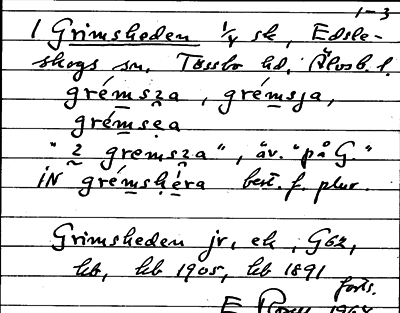 1-3
1 Grimsheden 1/4 sk, Edsle-
skogs sn, Tössbo hd, Älvsb. l.
grémsza, grémsja,
grémsea
"z gremsza", äv. "på G."
IN gremshéra best. f. plur.
Grimsheden jr, ek, G62,
hb, hb 1905, hb 1891
forts.